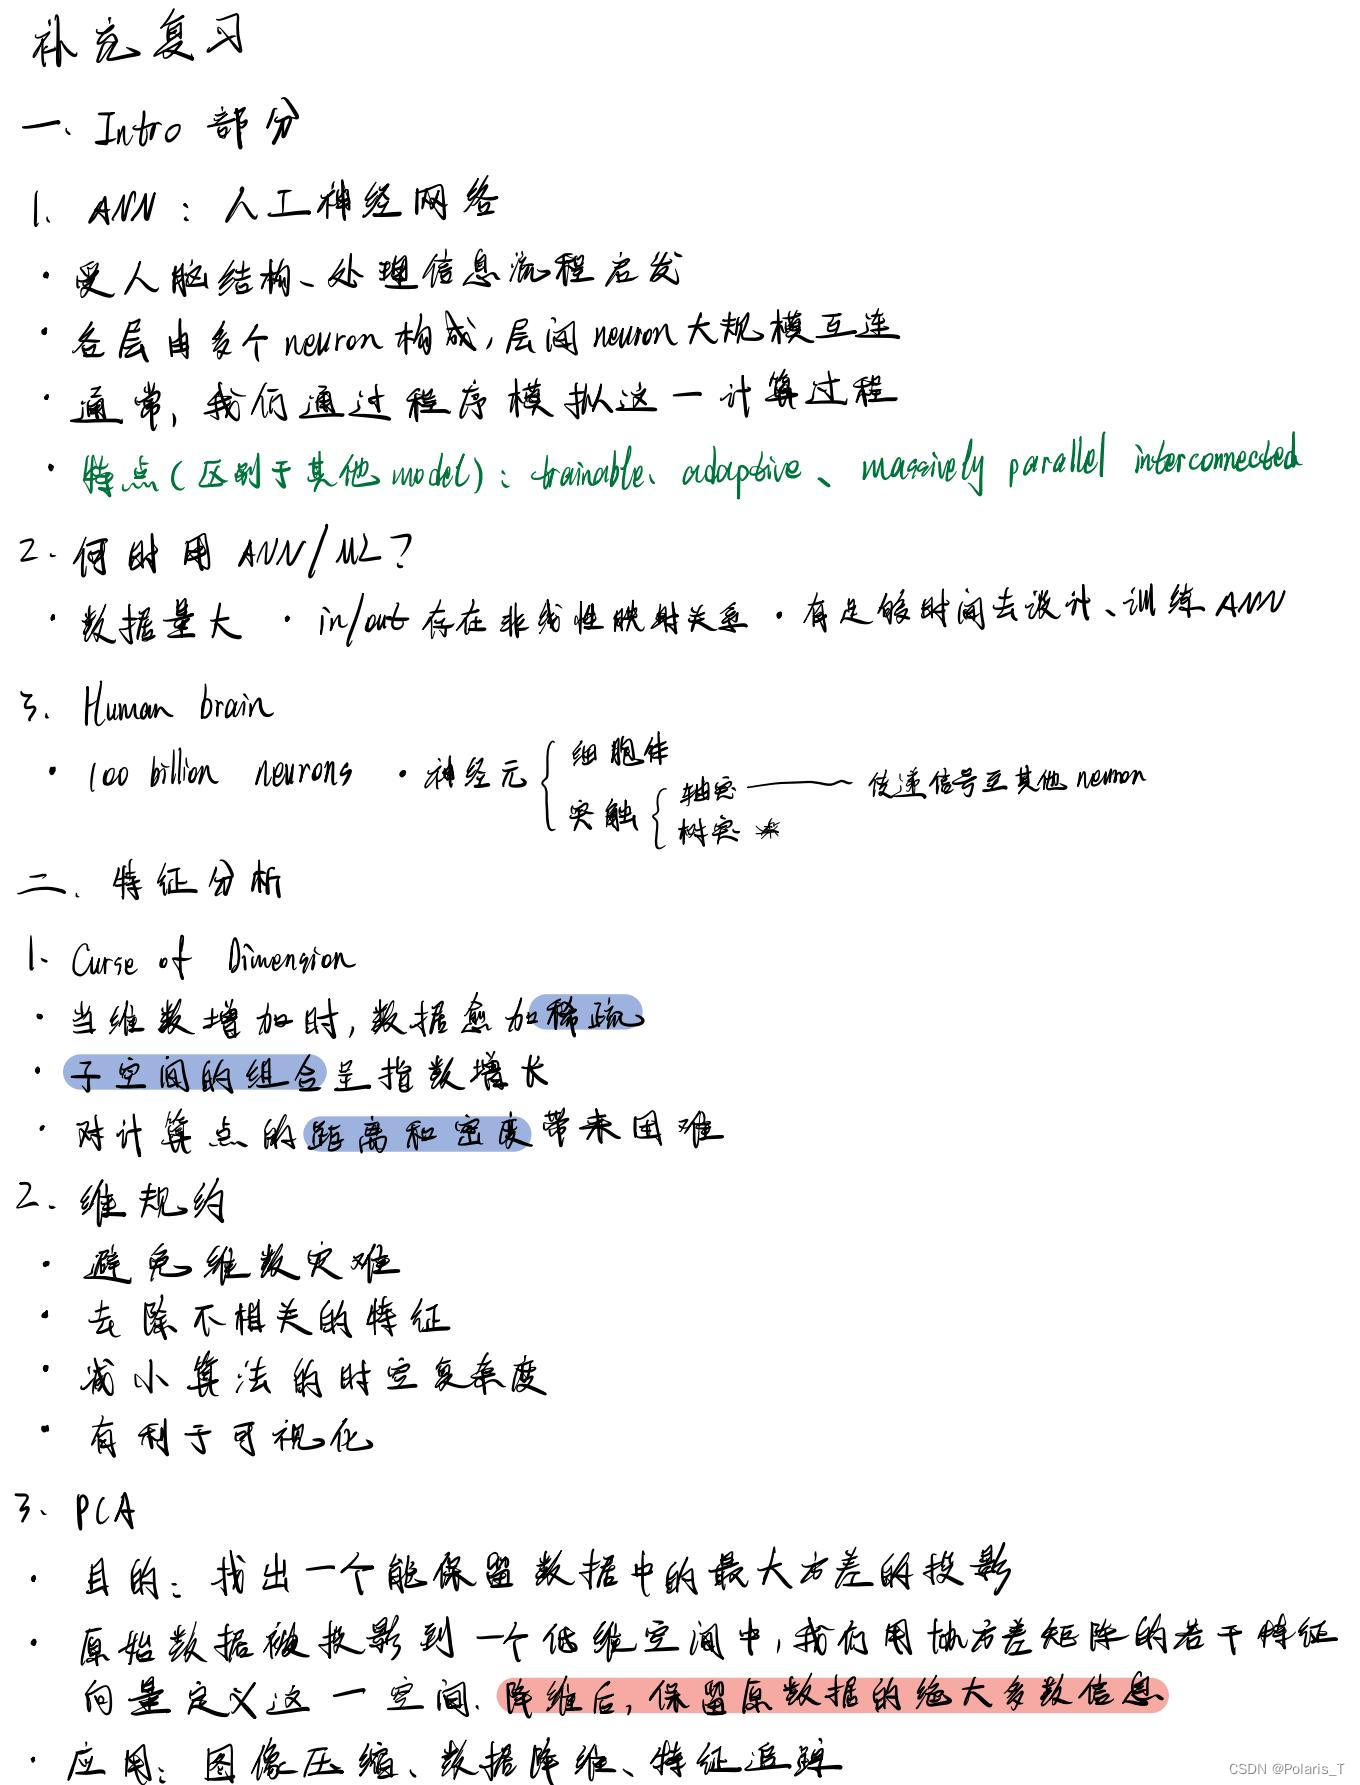 补充复习
一、Intro 部分
1、ANN：人工神经网络
· 受人脑结构、处理信息流程启发
· 各层由多个neuron构成，层间neuron大规模互连
· 通常，我们通过程序模拟这一计算过程
· 特点(区别于其他model)：trainable、adaptive、massively parallel interconnected
2. 何时用 ANN/ML？
· 数据量大 · in/out 存在非线性映射关系 · 有足够时间去设计、训练ANN
3. Human brain
· 100 billion neurons · 神经元
细胞体
突触
轴突 —— 传递信号至其他neuron
树突
二、特征分析
1. Curse of Dimension
· 当维数增加时，数据愈加稀疏
· 子空间的组合呈指数增长
· 对计算点的距离和密度带来困难
2. 维规约
· 避免维数灾难
· 去除不相关的特征
· 减小算法的时空复杂度
· 有利于可视化
3. PCA
· 目的：找出一个能保留数据中的最大方差的投影
· 原始数据被投影到一个低维空间中，我们用协方差矩阵的若干特征
向量定义这一空间. 降维后，保留原数据的绝大多数信息
· 应用：图像压缩、数据降维、特征追踪
CSDN @Polaris_T